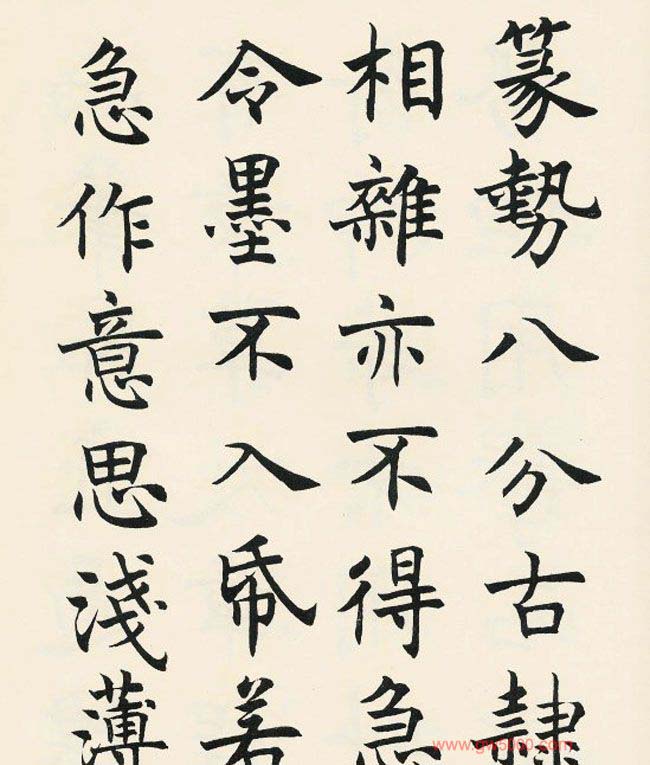 篆勢八分古隷
相雜亦不得急
令墨不入帋若
急作意思淺薄
www.gw5000.com